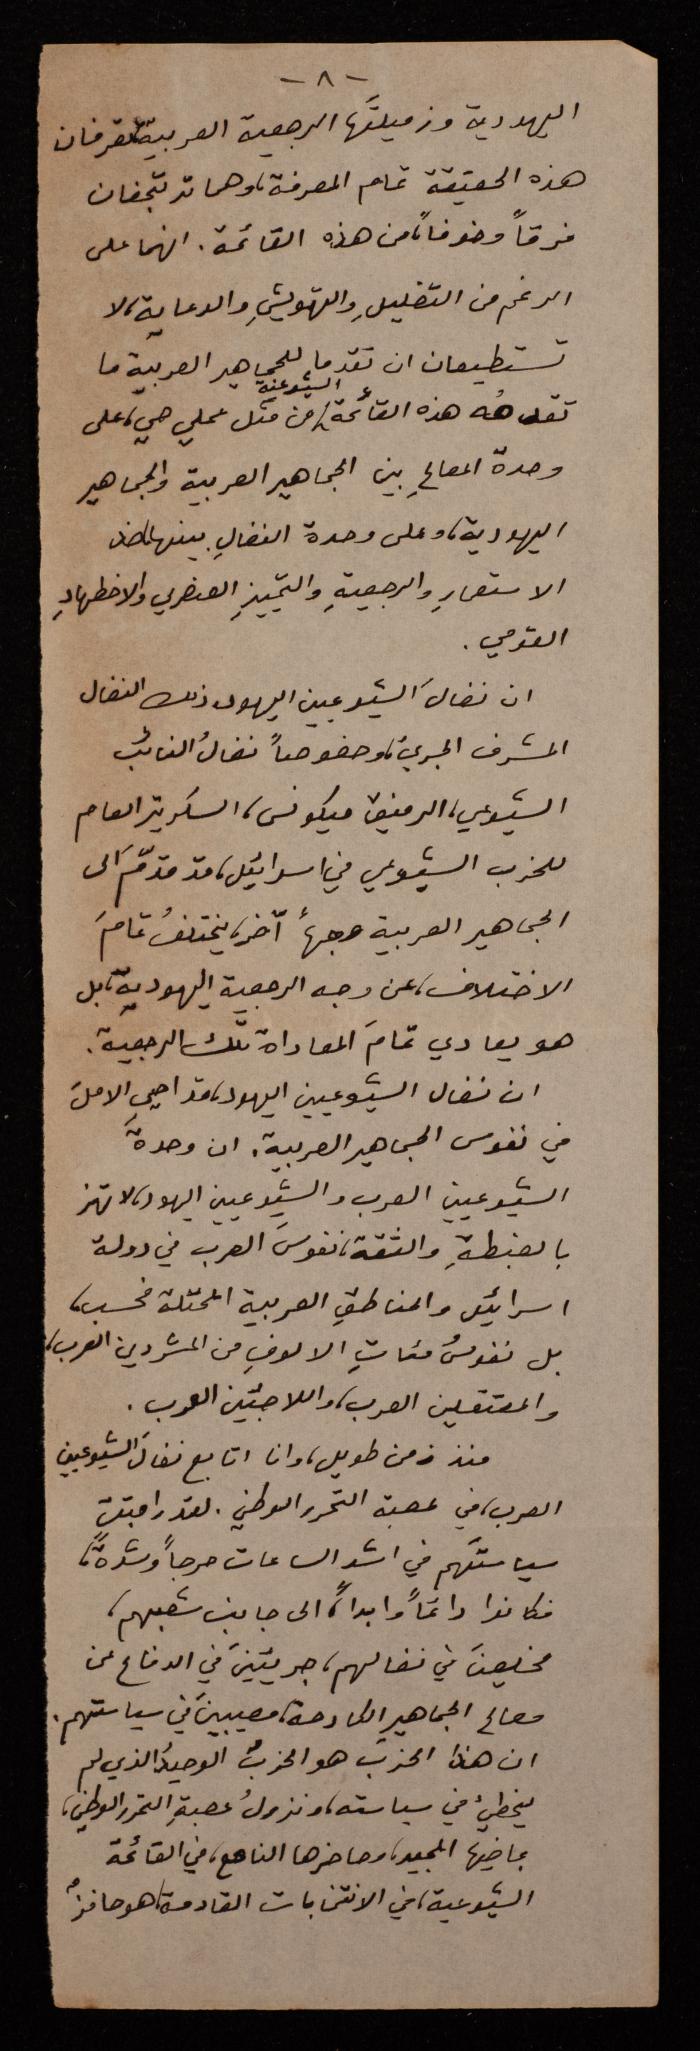 - ٨ -
اليهودية وزميلتَها الرجعية العربية، تعرفان
هذه الحقيقة تمام المعرفة، وهما ترتجفان
فرقاً وخوفاً، من هذه القائمة. انهما على
الرغم من التضليلِ والتهويشِ والدعاية، لا
تستطيعان ان تقدما للجماهير العربية ما
تقدمُه هذه القائمة الشيوعية، من مَثَل عملي حي، على
وحدة المصالحِ بين الجماهير العربية والجماهير
اليهودية، وعلى وحدة النضالِ بينهما ضد
الاستعمارِ والرجعيةِ والتمييزِ العنصري والاضطهادِ
القومي.
ان نضالَ الشيوعيين اليهود، ذلك النضال
المشرف الجريءَ، وخصوصاً نضالُ النائب
الشيوعي، الرفيق ميكونس، السكرتير العام
للحزب الشيوعي في اسرائيل، قد قدّم الى
الجماهير العربية وجهاً آخر، يختلفُ تمامَ
الاختلاف، عن وجه الرجعية اليهودية، بل
هو يعادي تمامَ المعاداة تلك الرجعية.
ان نضال الشيوعيين اليهود، قد احيى الاملَ
في نفوس الجماهير العربية. ان وحدةَ
الشيوعيين العرب والشيوعيين اليهود، لا تهز
بالغبطةِ والثقة، نفوسَ العرب في دولة
اسرائيل والمناطقِ العربية المحتلة فحسب،
بل نفوسُ مئاتِ الالوفِ من المشردين العرب،
والمعتقلين العرب، واللاجئين العرب.
منذ زمن طويل، وانا اتابع نضالَ الشيوعيين
العرب، في عصبة التحرر الوطني. لقد راقبتُ
سياستَهم في اشد الساعات حرجاً وشدةً،
فكانوا دائماً وابداً، الى جانب شعبهم،
مخلصينَ في نضالهم، جريئينَ في الدفاع عن
مصالح الجماهير الكادحة، مصيبينَ في سياستهم.
ان هذا الحزبَ هو الحزبُ الوحيدُ الذي لم
يخطيءْ في سياسته، ونزولُ عصبةِ التحرر الوطني،
بماضيها المجيد، وحاضرها الناصع، في القائمة
الشيوعية، في الانتخابات القادمة، هو حافزٌ